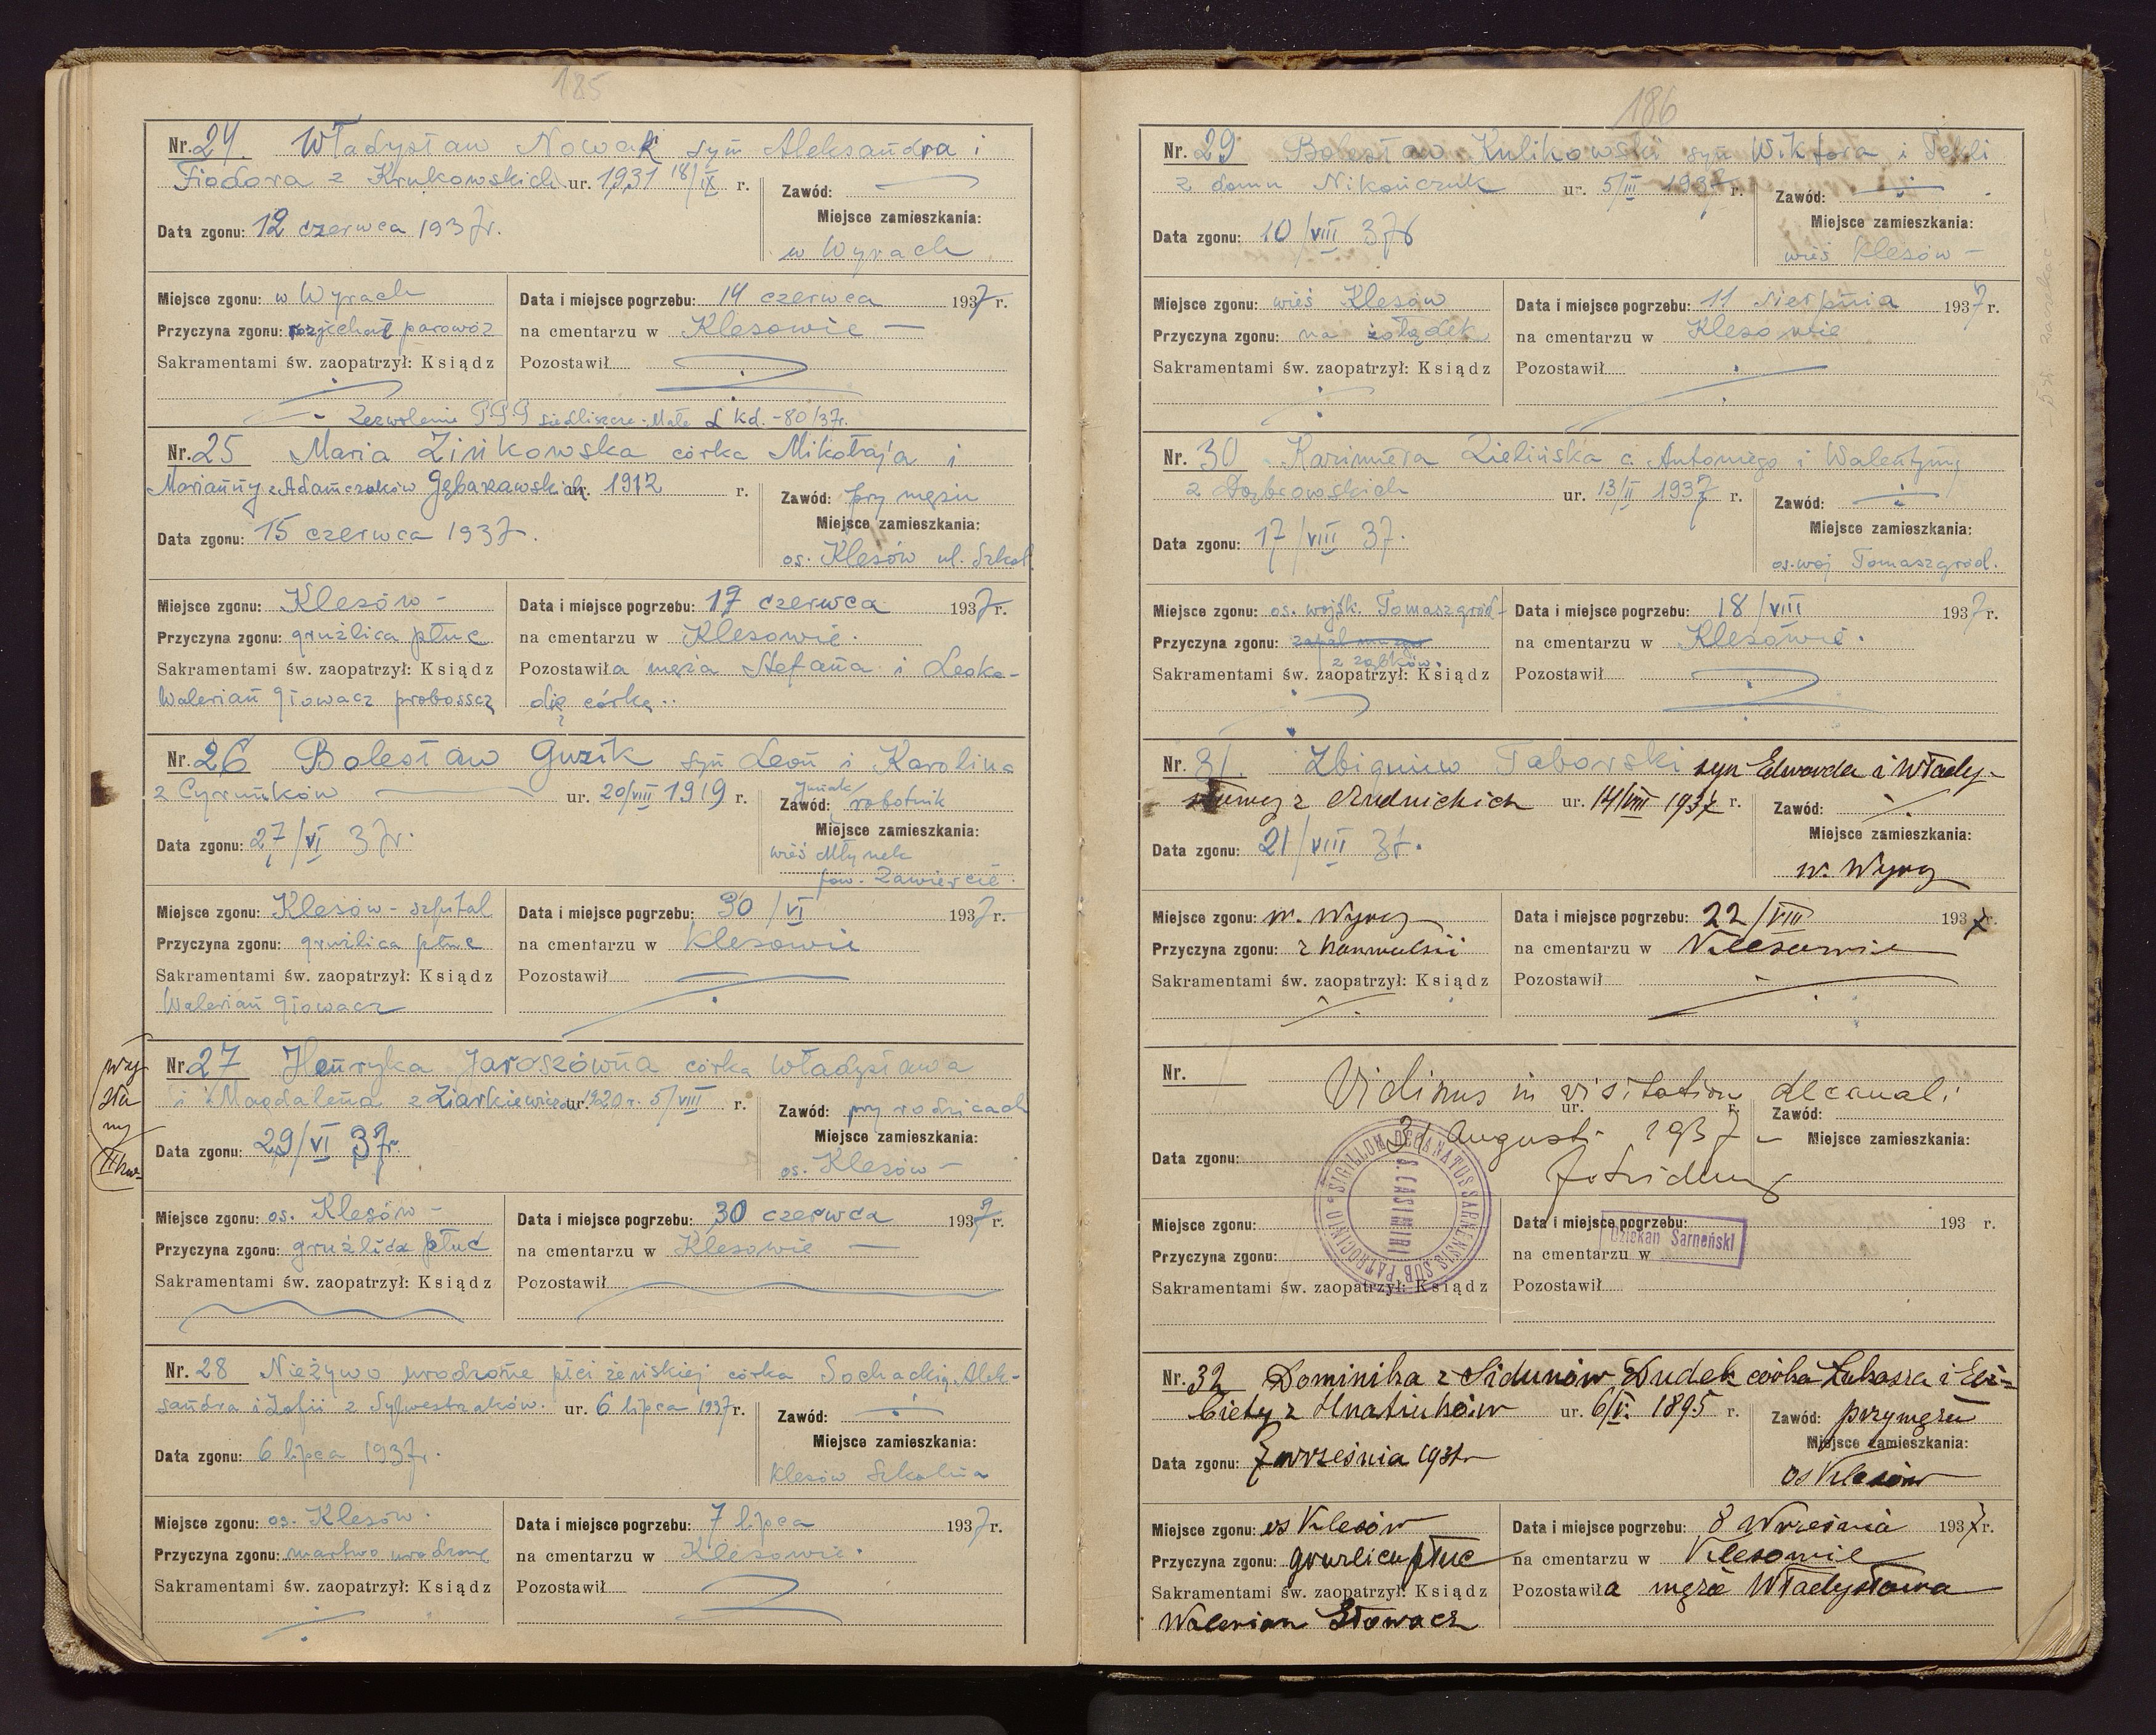 185
Nr. 24. Władysław Nowak syn Aleksandra i
Fiodora z Krukowskich ur. 1931 18/IX r.
Zawód: —
Miejsce zamieszkania:
w Wyrach
Data zgonu: 12 czerwca 1937r.
Miejsce zgonu: w Wyrach
Przyczyna zgonu: rozjechał parowóz
Sakramentami św. zaopatrzył: Ksiądz
Data i miejsce pogrzebu: 14 czerwca 1937r.
na cmentarzu w Klesowie —
Pozostawił
Zezwolenie P.P.P Siedliszcze-Małe L kd. - 80/37r.
Nr. 25 Maria Zinkowska córka Mikołaja i
Marianny z Adamczuków Gębarawskich ur. 1912 r.
Zawód: przy mężu
Miejsce zamieszkania:
os. Klesów ul. Szkol.
Data zgonu: 15 czerwca 1937.
Miejsce zgonu: Klesów -
Przyczyna zgonu: gruźlica płuc
Sakramentami św. zaopatrzył: Ksiądz
Walerian Głowacz proboszcz
Data i miejsce pogrzebu: 17 czerwca 1937r.
na cmentarzu w Klesowie.
Pozostawiła męża Stefana i Leoka-
dię córkę..
Nr. 26 Bolesław Guzik syn Leon i Karolina
z Cyruników ur. 20/VIII 1919 r.
Zawód: Junak robotnik
Miejsce zamieszkania:
wieś Młynek
pow. Zawiercie
Data zgonu: 27/VI 37r.
Miejsce zgonu: Klesów - szpital
Przyczyna zgonu: gruźlica płuc
Sakramentami św. zaopatrzył: Ksiądz
Walerian Głowacz
Data i miejsce pogrzebu: 30/VI 1937r.
na cmentarzu w Klesowie
Pozostawił
wy
sła
ny
II kw.
Nr. 27 Henryka Jaroszówna córka Władysława
i Magdalena z Ziarkiewiczów ur. 1920 r. 5/VIII r.
Zawód: przy rodzicach
Miejsce zamieszkania:
os. Klesów -
Data zgonu: 29/VI 37r.
Miejsce zgonu: os. Klesów -
Przyczyna zgonu: gruźlica płuc
Sakramentami św. zaopatrzył: Ksiądz
Data i miejsce pogrzebu: 30 czerwca 1937r.
na cmentarzu w Klesowie —
Pozostawił
Nr. 28 Nieżywo urodzone płci żeńskiej córka Sochackiej Alek-
sandra i Zofii z Sylwestrzaków. ur. 6 lipca 1937r.
Zawód:
Miejsce zamieszkania:
Klesów Szkolna
Data zgonu: 6 lipca 1937r.
Miejsce zgonu: os. Klesów.
Przyczyna zgonu: martwo urodzone
Sakramentami św. zaopatrzył: Ksiądz
Data i miejsce pogrzebu: 7 lipca 1937r.
na cmentarzu w Klesowie.
Pozostawił
186
Nr. 29 Bolesław Kulikowski syn Wiktora i Tekli
z domu Nikończuk ur. 5/III 1937 r.
Zawód:
Miejsce zamieszkania:
wieś Klesów -
Data zgonu: 10/VIII 37r
Miejsce zgonu: wieś Klesów
Przyczyna zgonu: na żołądek
Sakramentami św. zaopatrzył: Ksiądz
Data i miejsce pogrzebu: 11 sierpnia 1937r.
na cmentarzu w Klesowie
Pozostawił
Nr. 30 Kazimiera Zielińska c. Antoniego i Walentyny
z Dąbrowskich ur. 13/II 1937 r.
Zawód:
Miejsce zamieszkania:
os. woj Tomaszgród.
Data zgonu: 17/VIII 37.
Miejsce zgonu: os. wojsk. Tomaszgród-
Przyczyna zgonu: z ząbków.
Sakramentami św. zaopatrzył: Ksiądz
Data i miejsce pogrzebu: 18/VIII 1937r.
na cmentarzu w Klesowie.
Pozostawił
Nr. 31. Zbigniew Taborski syn Edwarda i Włady-
sławy z Rudnickich ur. 14/VIII 1937 r.
Zawód:
Miejsce zamieszkania:
w. Wyry
Data zgonu: 21/VIII 37.
Miejsce zgonu: w. Wyry
Przyczyna zgonu: z konwulsii
Sakramentami św. zaopatrzył: Ksiądz
Data i miejsce pogrzebu: 22/VIII 1937r.
na cmentarzu w Klesowie
Pozostawił
Nr.
Vidimus in visitation decanali
ur. r. Zawód:
31 Augusti 1937
Miejsce zamieszkania:
Data zgonu:
SIGILLUM DECANATUS SARNENSIS SUB PATROCINIO
S. CASIMIRI
Miejsce zgonu:
Przyczyna zgonu:
Sakramentami św. zaopatrzył: Ksiądz
Data i miejsce pogrzebu: 193 r.
Dziekan Sarneński
na cmentarzu w
Pozostawił
Nr. 32 Dominika z Sidunów Dudek córka Łukasza i Elż=
biety z Hnatiuków ur. 6/V. 1895 r.
Zawód: przy mężu
Miejsce zamieszkania:
os Klesów
Data zgonu: 7 września 1937r
Miejsce zgonu: os Klesów
Przyczyna zgonu: gruzlica płuc
Sakramentami św. zaopatrzył: Ksiądz
Walerian Głowacz
Data i miejsce pogrzebu: 8 Września 1937r.
na cmentarzu w Klesowie
Pozostawiła męża Władysława